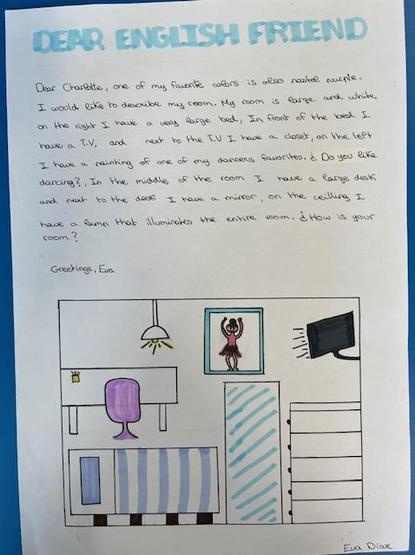 DEAR ENGLISH FRIEND
Dear Charlotte, one of my favorite colors is also pastel purple.
I would like to describe my room. My room is large and white,
on the right I have a very large bed, In front of the bed I
have a T.V, and next to the T.V I have a closet, on the left
I have a painting of one of my dancers favorites. ¿ Do you like
dancing?, In the middle of the room I have a large desk
and next to the desk I have a mirror, on the ceilling I
have a lamp that illuminates the entire room. ¿ How is your
room?
Greetings, Eva
Eva Díaz